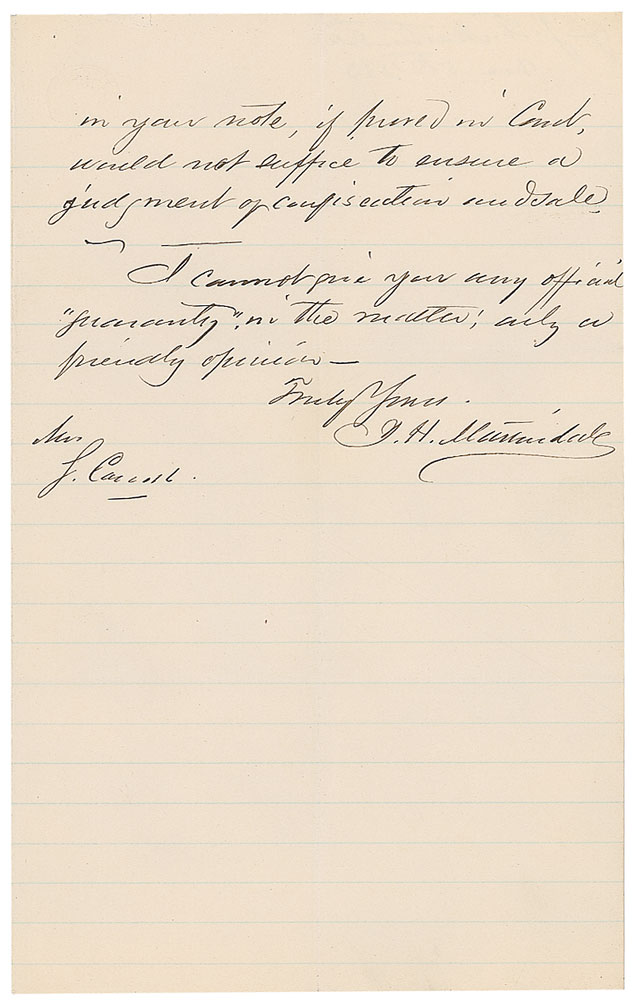 in your note, if proved in Court,
would not suffice to ensure a
judgment of confiscation and sale
I cannot give you any official
"guaranty", in the matter; only a
friendly opinion—
Truly Yours.
J. H. Martindale
Mrs